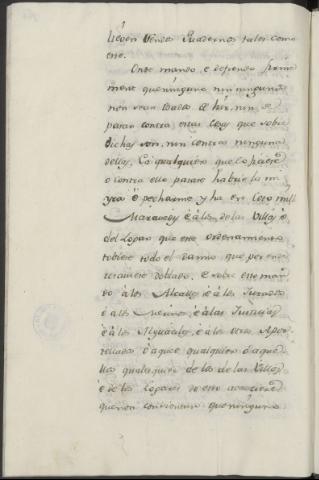 lleven dendos Quadernos tales como
este.
Onde mando, e defiendo firme
mente que ninguno nin ninguna
non sean osados de hir, nin se
parar contra estas cosas que sobre
dichas son, nin contra ninguna
dellas, Ca qualquiera que lo ficiere
o contra ello pasare habrie la mi
yra è pecharme y ha en Coto mill
Maravedis è à los de las Villas è
del Logar que este ordenamiento
tobiere todo el danno que por ende
resciviere doblado. e sobre esto man
do à los Alcalles è à los Jurados
è à los Merinos, è à las Justicias
è à los Alguaciles, è à los otros Apor
tellados ò à que qualquiera ò à que
llas qualesquier de los de las Villas
è de los Logares do esto acaeciere
quieran consientan que ninguno